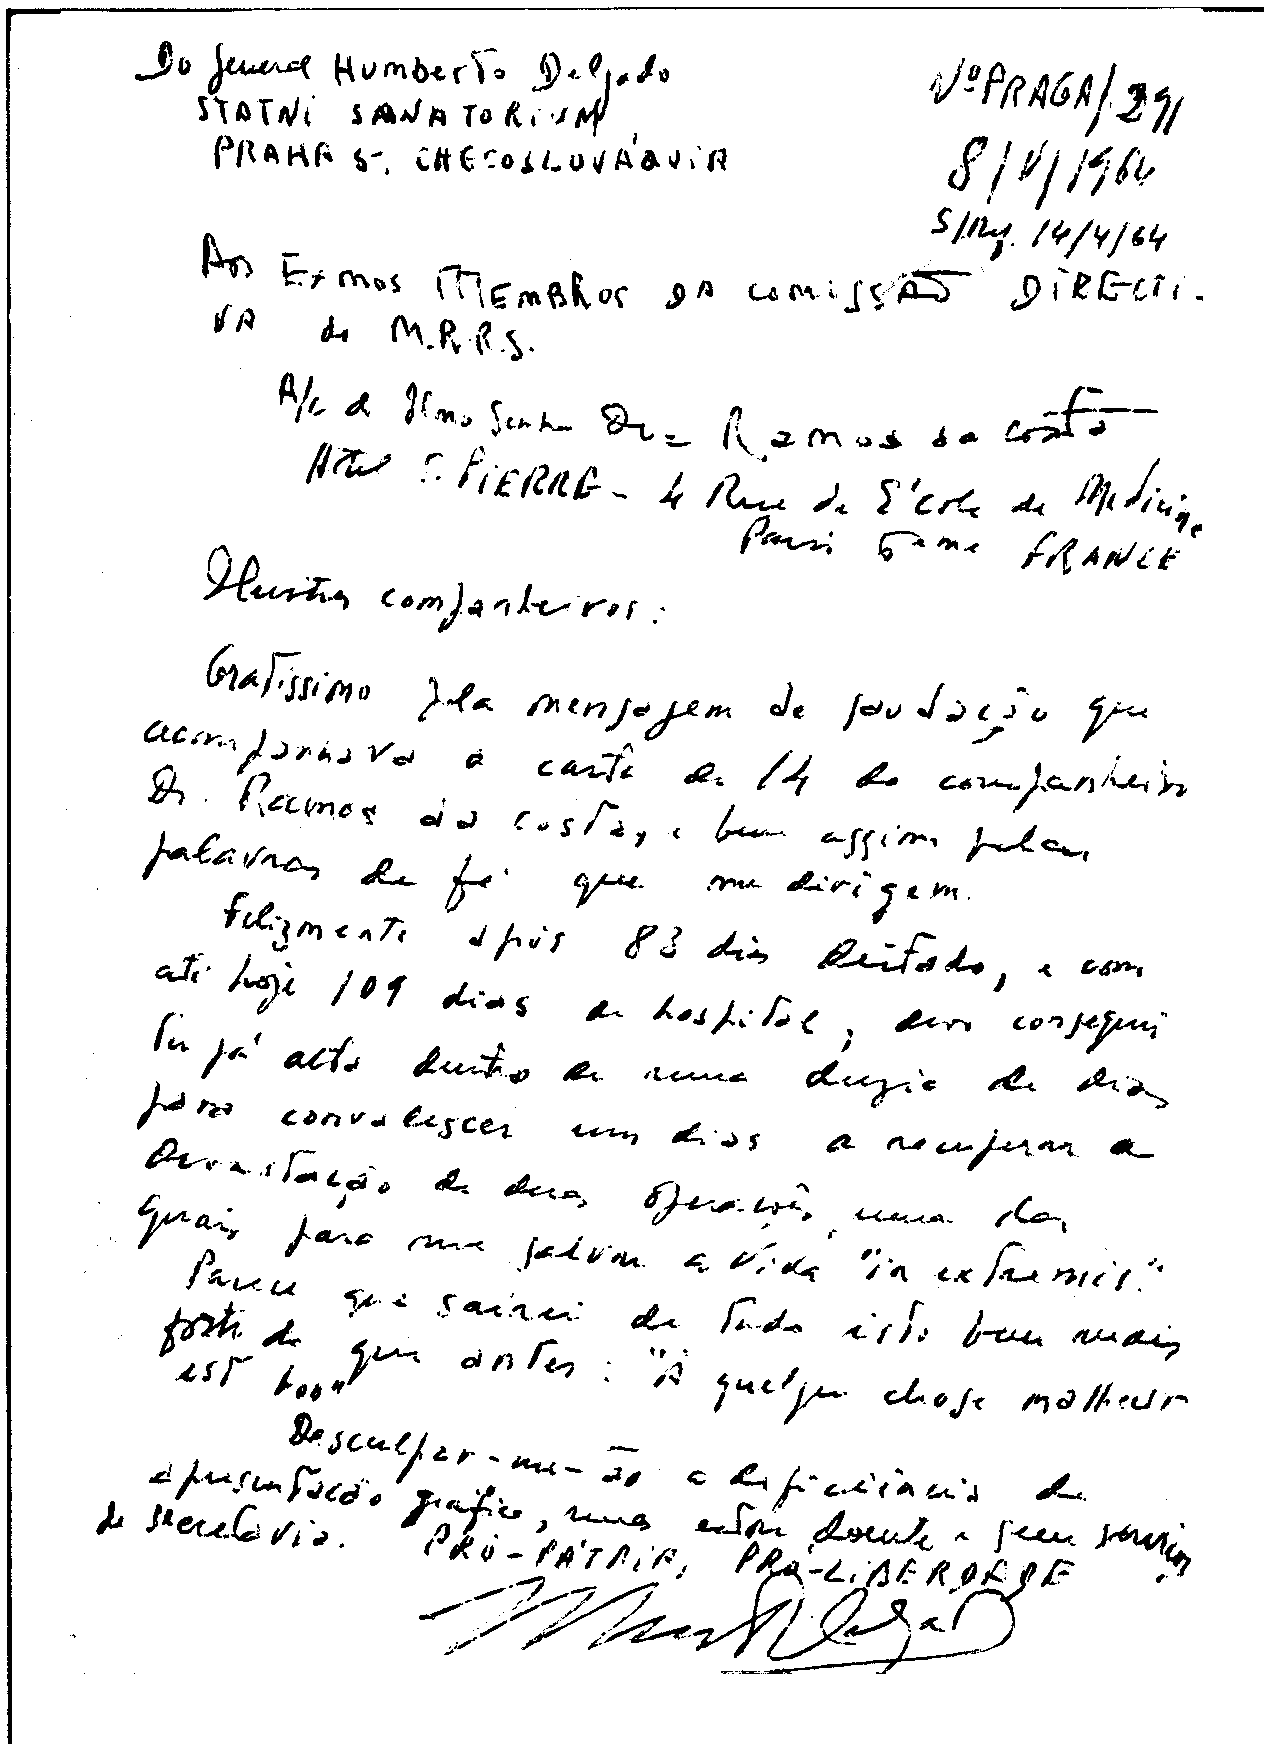 Do General Humberto Delgado
STATNI SANATORIUM
PRAHA 5, CHECOSLOVÁQUIA
Nº PRAGA/291
8/V/1964
S/Refª. 14/4/64
Aos Exmos MEMBROS DA COMISSÃO DIRECTI-
VA da M.R.R.S.
A/c do Ilmo Senhor Dr. Ramos da Costa
Hotel S. PIERRE - 4 Rue de l'École de Medicine
Paris 6ème FRANCE
Ilustres companheiros:
Gratíssimo pela mensagem de saudação que
acompanhava a carta de 14 do companheiro
Dr. Ramos da Costa, e bem assim pelas
palavras de fé que me dirigem.
Felizmente após 83 dias deitado, e com
até hoje 109 dias de hospital, devo conseguir
ter já alta dentro de uma duzia de dias
para convalescer uns dias a recuperar a
devastação de duas operações, uma das
quais para me salvar a vida "in extremis."
Parece que sairei de tudo isto bem mais
forte do que antes: "À quelque chose malheur
est bon"
Desculpar-me-ão a deficiência de
apresentação gráfica, mas estou doente e sem serviços
de secretaria. PRÓ-PÁTRIA, PRÓ-LIBERDADE